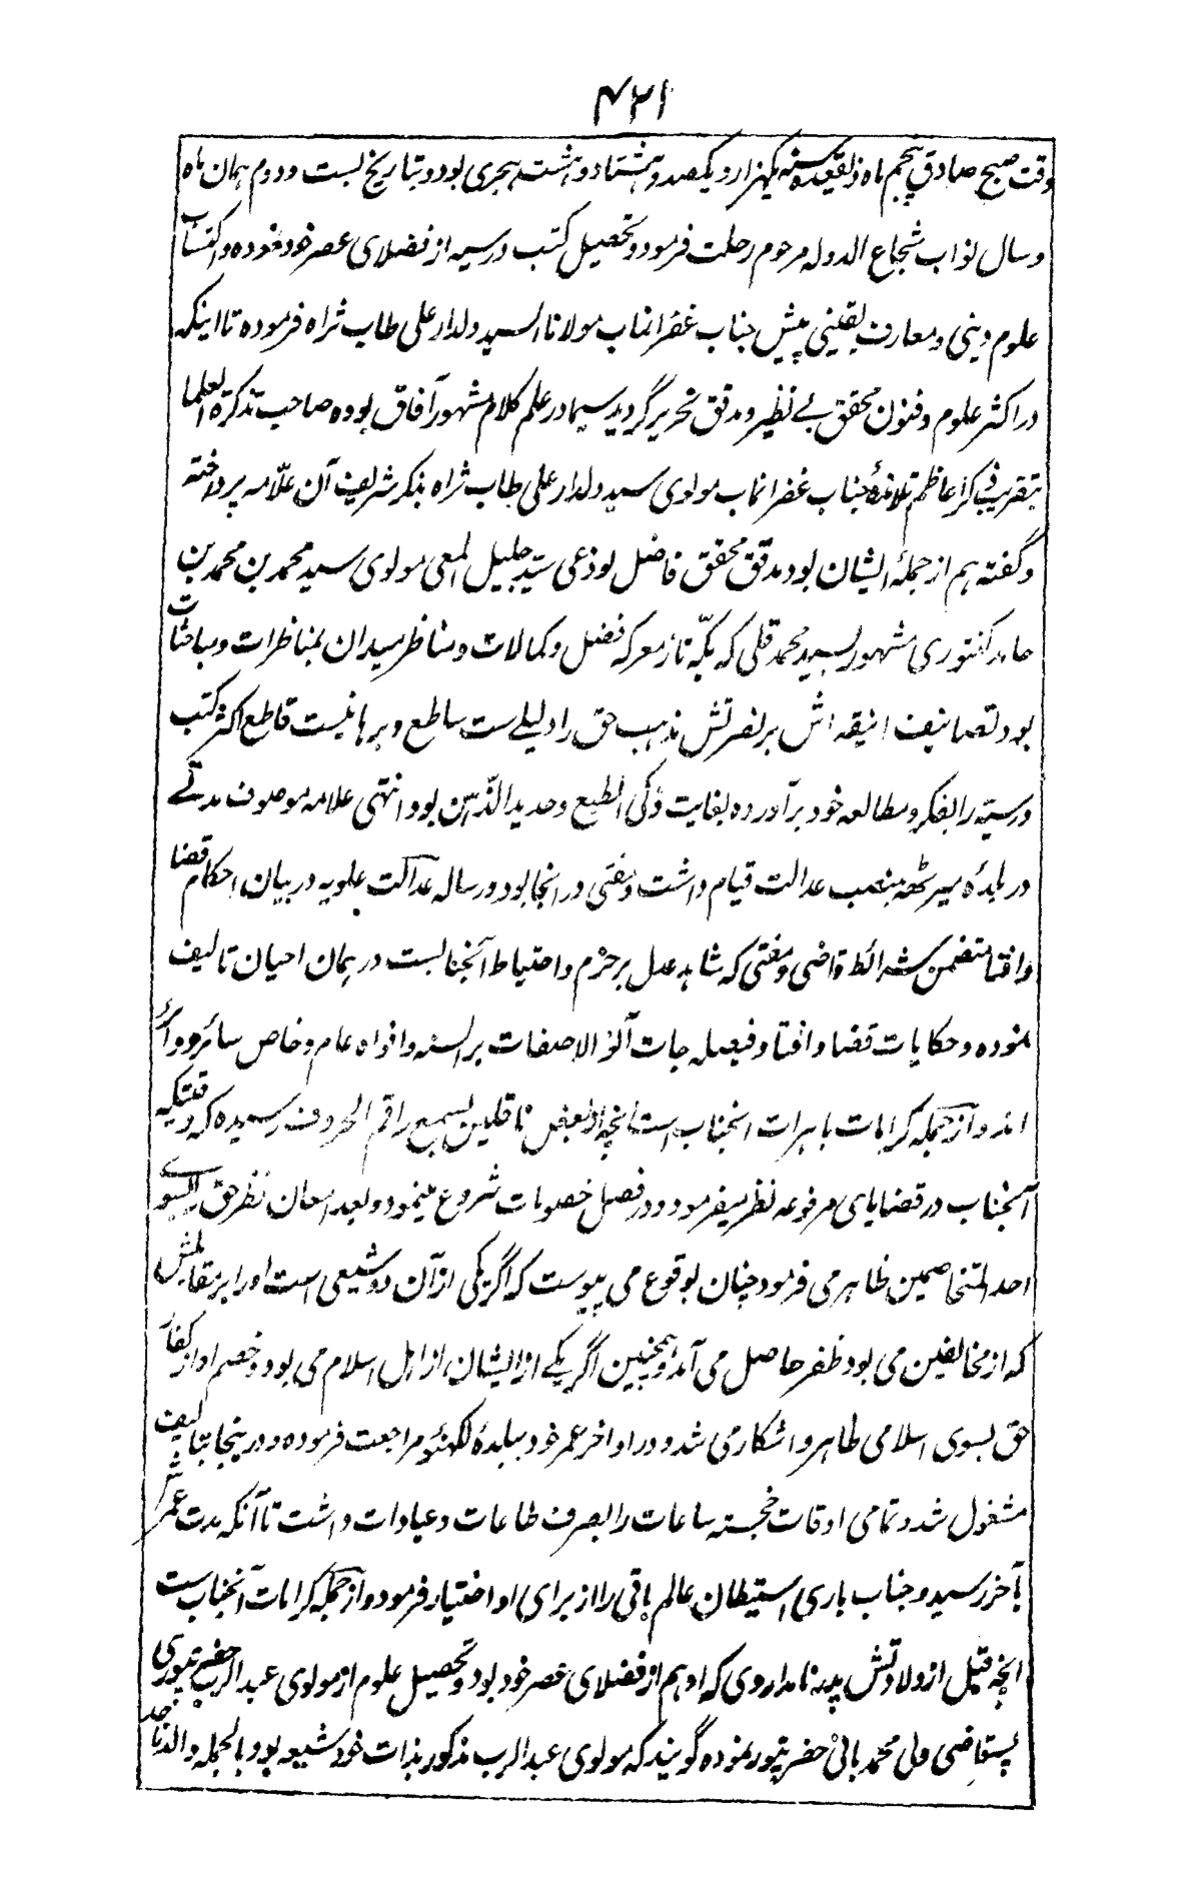 ۴۲۱
وقت صبح صادق پنجم ماه ذیقعده سنه یکهزار و یکصد و هشتاد و هشت هجری بود و بتاریخ بست و دوم همان ماه
و سال نواب شجاع الدوله مرحوم رحلت فرمود و تحصیل کتب درسیه از فضلای عصر خود نموده و اکتساب
علوم دینی و معارف یقینی پیش جناب غفرانمآب مولانا السید دلدار علی طاب ثراه فرموده تا اینکه
در اکثر علوم و فنون محقق بے نظیر و مدقق نحریر گردید سیما در علم کلام مشهور آفاق بوده صاحب تذکرة العلما
بتقریب ذکر اعاظم تلامذهٔ جناب غفرانمآب مولوی سید دلدار علی طاب ثراه بذکر شریف آن علّامه پرداخته
و گفته هم از جملهٔ ایشان بود مدقق محقق فاضل لوذعی سیّد جلیل المعی مولوی سید محمد بن محمد بن
حامد کنتوری مشهور بسید محمد قلی که یکّه تاز معرکه فضل و کمالات و مناظر میدان مناظرات و مباحثات
بود تصانیف انیقه اش بر نصرتش مذهب حق را دلیلے ست ساطع و برهانیست قاطع اکثر کتب
درسیّه را بفکر و مطالعه خود برآورده بغایت ذکی الطبع و حدید الذّهن بود انتهی علامه موصوف مدتے
در بلدهٔ میرٹھه بمنصب عدالت قیام داشت و مفتی در انجا بود و رساله عدالت علویه در بیان احکام قضا
و افتا متضمن شرائط قاضی و مفتی که شاهد عدل بر حزم و احتیاط آنجنابست در همان احیان تالیف
نموده و حکایات قضا و افتا و فیصله جات آن والاصفات بر السنه و افواه عام و خاص سائر و دائر
اند و از جمله کرامات باهرات انجناب است انچه از بعض ناقلین بسمع راقم الحروف رسیده که وقتیکه
آنجناب در قضایای مرفوعه نظر میفرمود و در فصل خصومات شروع مینمود و بعد امعان نظر حق را بسوے
احد المتخاصمین ظاهر می فرمود چنان بوقوع می پیوست که اگر یکی از آن دو شیعی است او را بر مقابلش
که از مخالفین می بود ظفر حاصل می آمد و همچنین اگر یکے از ایشان از اهل اسلام می بود و خصم او از کفار
حق بسوی اسلامی ظاهر و اشکار می شد و در اواخر عمر خود ببلدهٔ لکهنؤ مراجعت فرموده و در ینجا بتالیف
مشغول شد و تمامی اوقات خجسته ساعات را بصرف طاعات و عبادات داشت تا آنکه مدت عمرش
بآخر رسید و جناب باری استیطان عالم باقی را از برای او اختیار فرمود و از جمله کرامات آنجنابست
انچه قبل از ولادتش پدر نامدار وی که او هم از فضلای عصر خود بود و تحصیل علوم از مولوی عبد الرب حضرتپوری
پسر قاضی ولی محمد بانی حضرتپور نموده گویند که مولوی عبد الرب مذکور بذات خود شیعه بود بالجمله والد ماجد